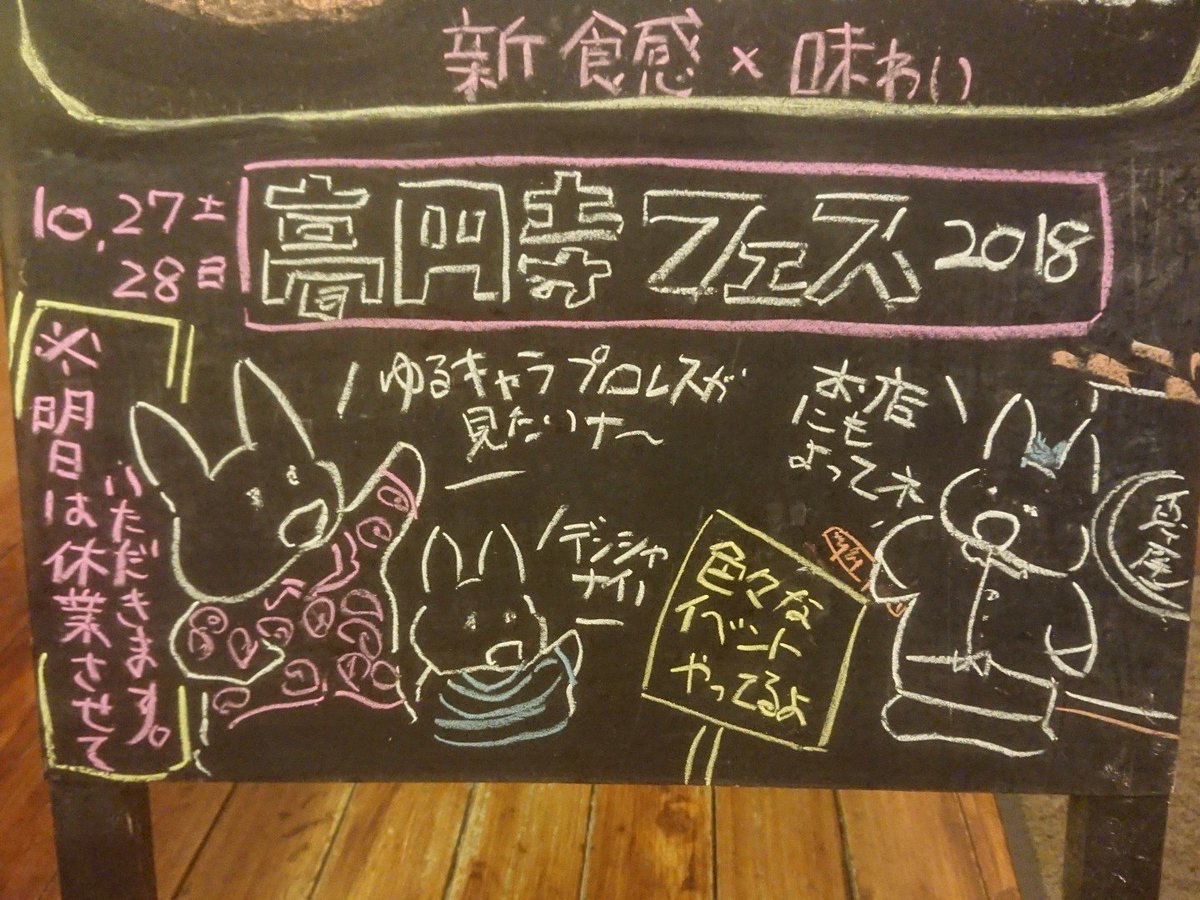 新食感×味わい
10,27土
28日
高円寺フェス2018
※明日は休業させて
いただきます。
ゆるキャラプロレスが
見たいナ〜
デンシャ
ナイ!
お店
にも
よってネ
色々な
イベント
やってるよ